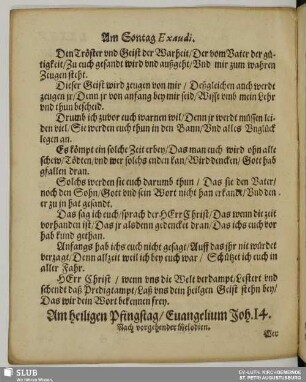 Am Sontag Exaudi.
Den Tröster vnd Geist der Warheit/ Der vom Vater der gü-
tigkeit/ Zu euch gesandt wird vnd außgeht/ Vnd mir zum wahren
Zeugen steht.
Dieser Geist wird zeugen von mir/ Deßgleichen auch werdt
zeugen jr/ Denn jr von anfang bey mir seid/ Wisst vmb mein Lehr
vnd thun bescheid.
Drumb ich zuvor euch warnen wil/ Denn jr werdt müssen lei-
den viel/ Sie werden euch thun in den Bann/ Vnd alles Vnglück
legen an.
Es kömpt ein solche Zeit erbey/ Das man euch wird ohn alle
schew/ Tödten/ vnd wer solchs enden kan/ Wird dencken/ Gott hab
gfallen dran.
Solchs werden sie euch darumb thun/ Das sie den Vater/
noch den Sohn/ Gott vnd sein Wort nicht han erkandt/ Vnd den
er zu jn hat gesandt.
Das sag ich euch/ sprach der HErr Christ/ Das wenn die zeit
vorhanden ist/ Das jr alsdenn gedencket dran/ Das ichs euch vor
hab kund gethan.
Anfangs hab ichs euch nicht gesagt/ Auff das jhr nit würdet
verzagt/ Denn allzeit weil ich bey euch war/ Schützet ich euch in
aller Fahr.
HErr Christ/ wenn vns die Welt verdampt/ Lestert vnd
schendt daß Predigtampt/ Laß vns den heilgen Geist stehn bey/
Das wir dein Wort bekennen frey.
Am heiligen Pfingstag/ Euangelium Joh. 14.
Nach vorgehender Melodien.
Wer
SLUB
Wir führen Wissen.
EV.-LUTH. KIRCHGEMEINDE
ST. PETRI AUGUSTUSBURG